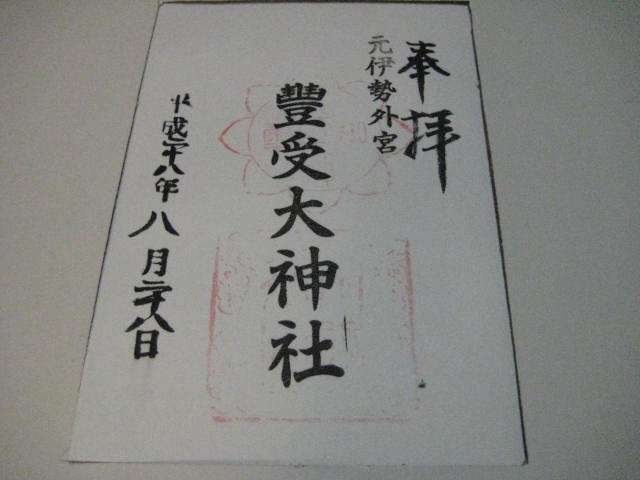 奉拝
元伊勢外宮
豊受大神社
平成二十八年八月二十八日